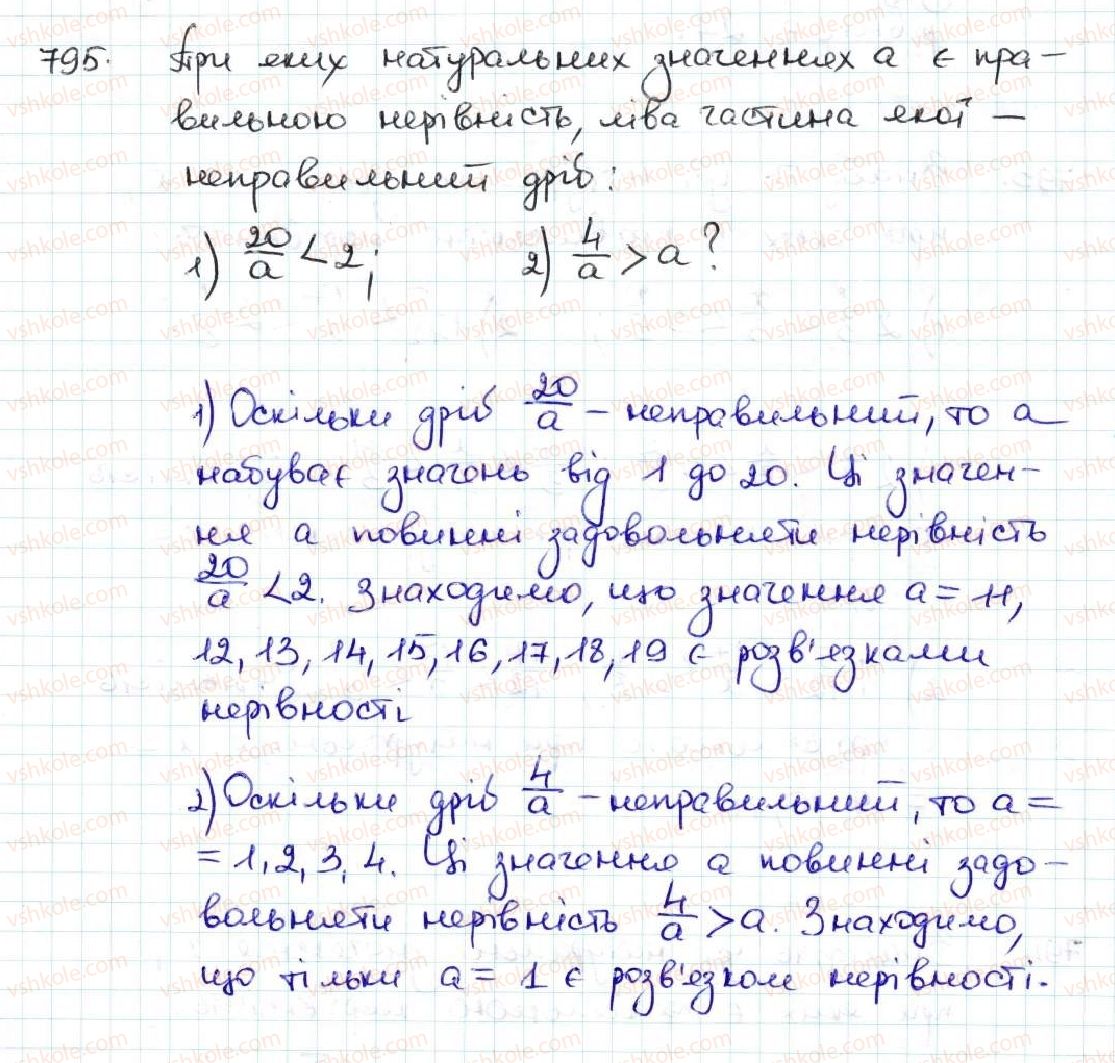 795. При яких натуральних значеннях a є пра-
вильною нерівність, ліва частина якої —
неправильний дріб:
1) 20/a < 2; 2) 4/a > a?
1) Оскільки дріб 20/a – неправильний, то a
набуває значень від 1 до 20. Ці значен-
ня a повинні задовольняти нерівність
20/a < 2. Знаходимо, що значення a = 11,
12, 13, 14, 15, 16, 17, 18, 19 є розв'язками
нерівності
2) Оскільки дріб 4/a – неправильний, то a =
= 1, 2, 3, 4. Ці значення a повинні задо-
вольняти нерівність 4/a > a. Знаходимо,
що тільки a = 1 є розв'язком нерівності.
vshkole.com